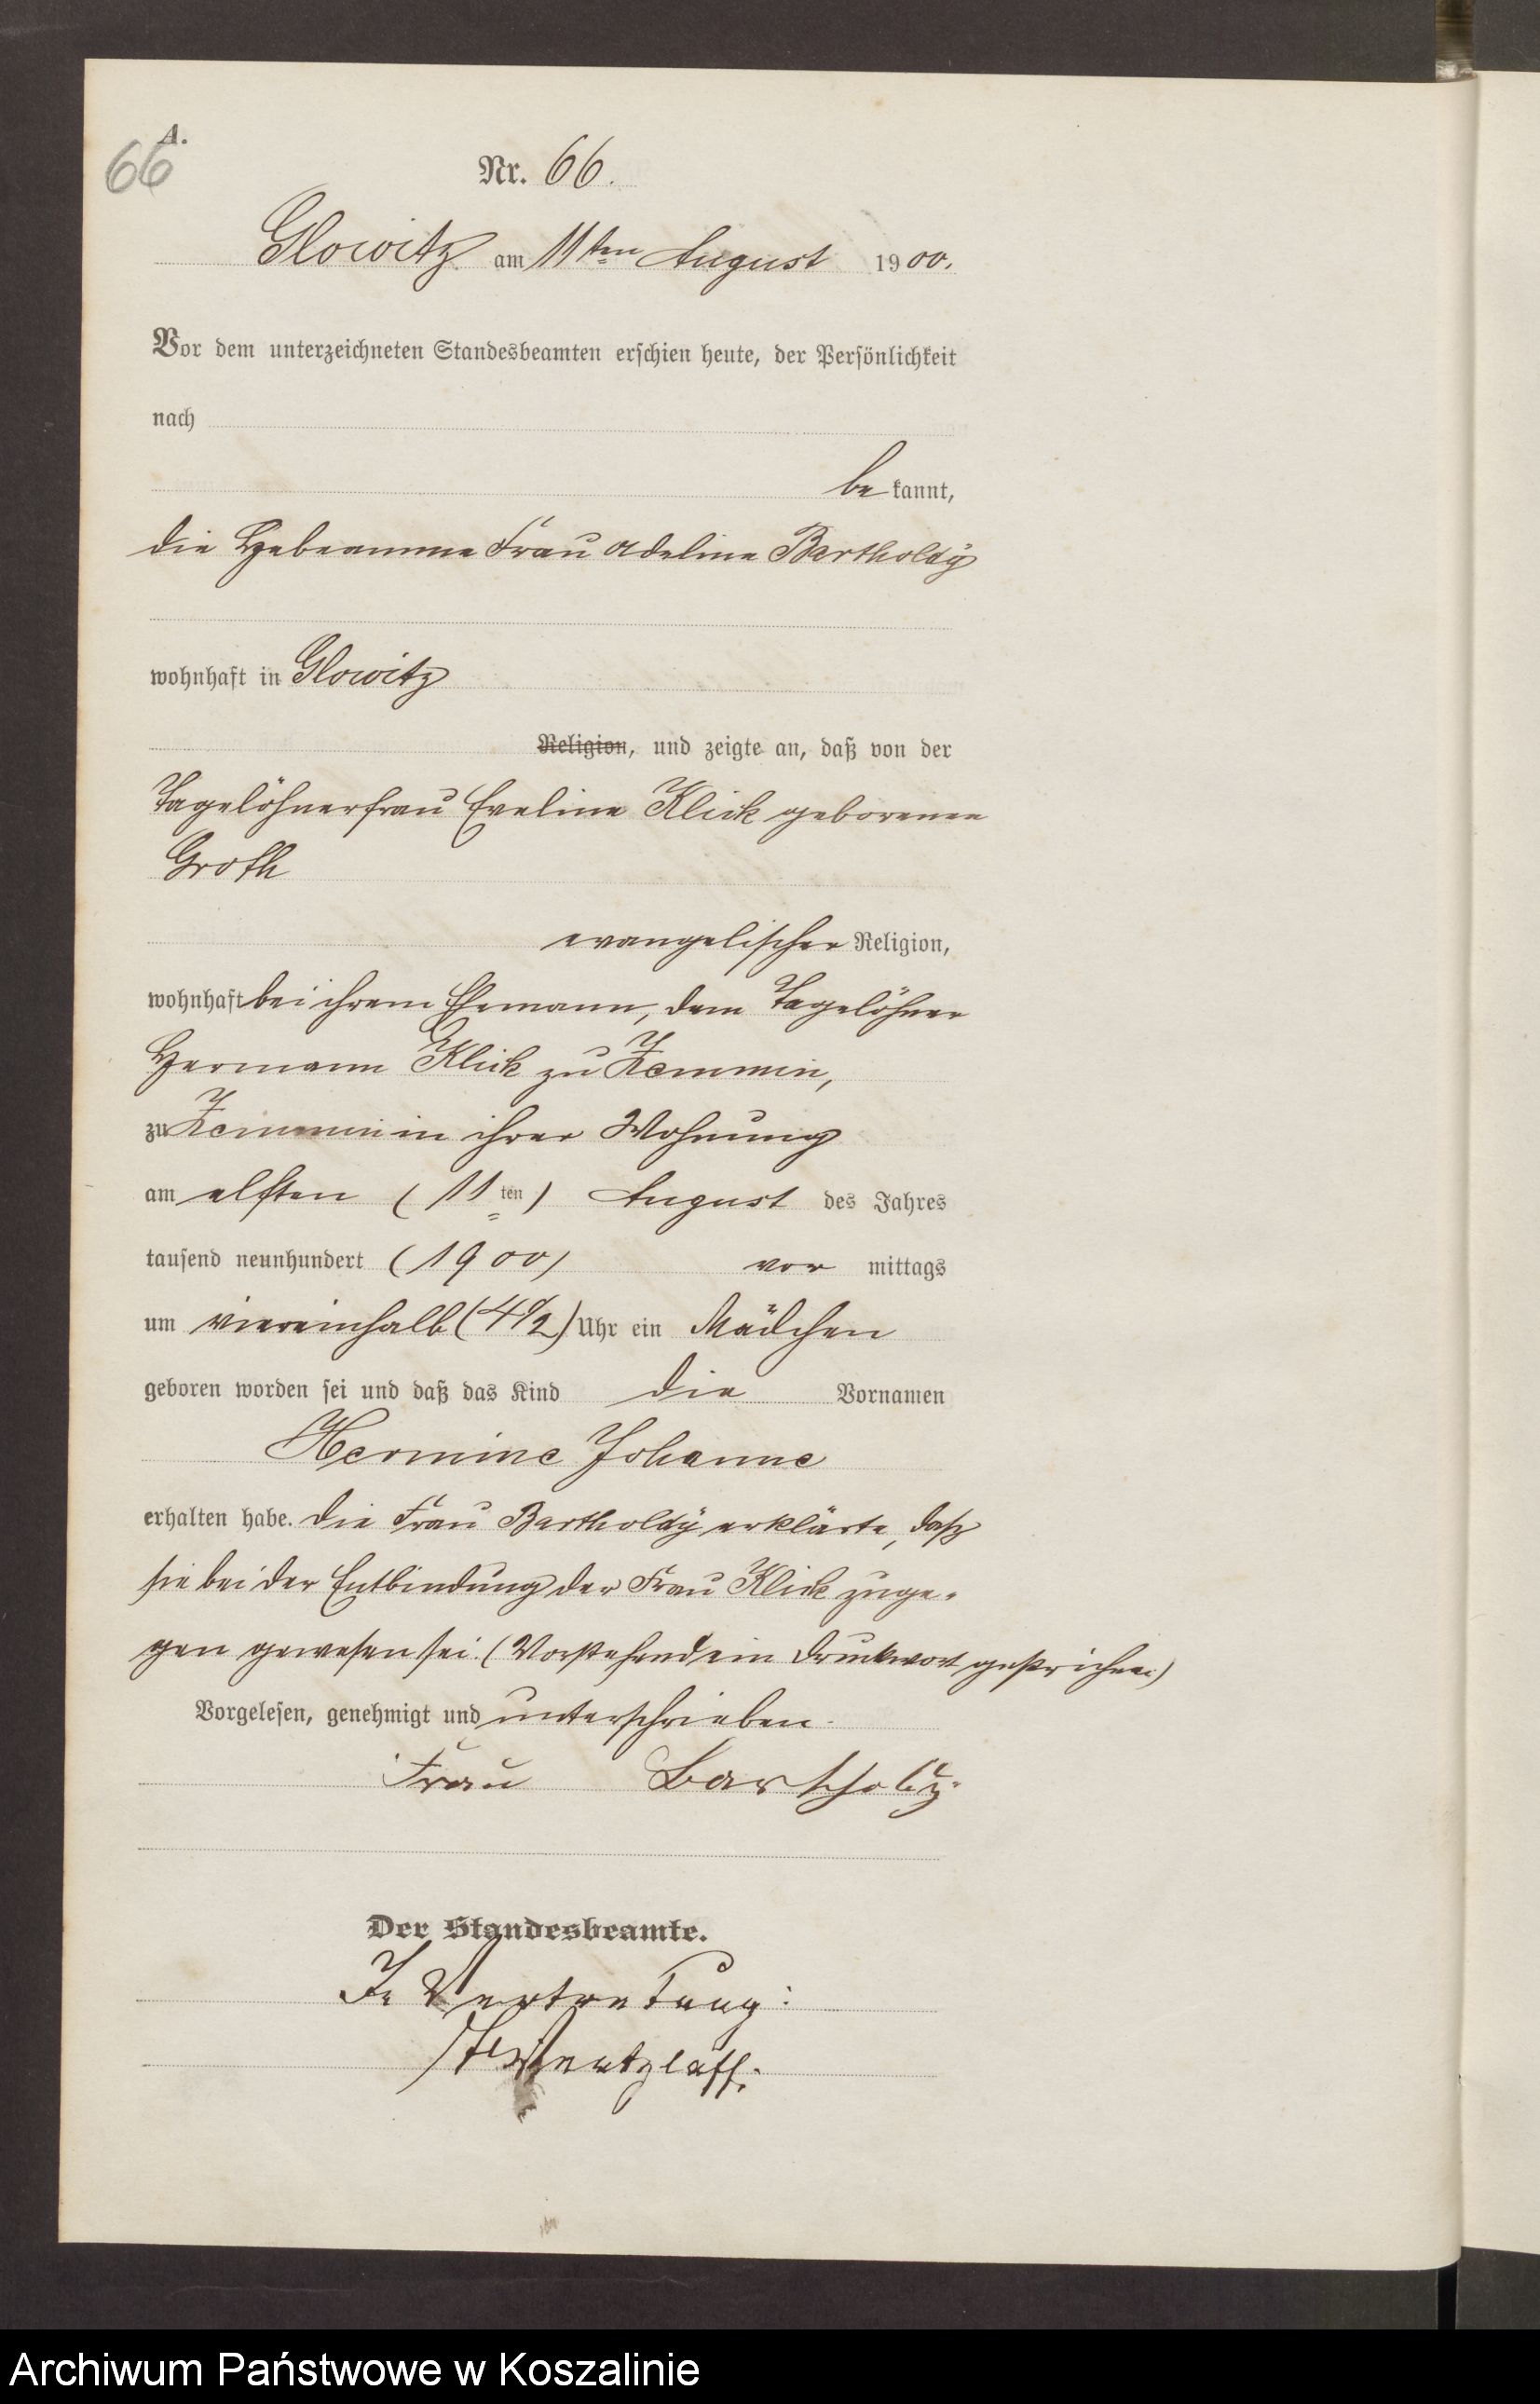 A.
66
Nr. 66.
Glowitz am 11ten August 1900.
Vor dem unterzeichneten Standesbeamten erschien heute, der Persönlichkeit
nach
bekannt,
die Hebeamme Frau Adeline Bartholdÿ
wohnhaft in Glowitz
Religion, und zeigte an, daß von der
Tagelöhnerfrau Eveline Klick geborenen
Groth
evangelischer Religion,
wohnhaft bei ihrem Ehemann, dem Tagelöhner
Hermann Klick zu Zemmin,
zu Zemmin in ihrer Wohnung
am elften (11ten) August des Jahres
tausend neunhundert (1900) vor mittags
um viereinhalb (4 1/2) Uhr ein Mädchen
geboren worden sei und daß das Kind die Vornamen
Hermine Johanne
erhalten habe. Die Frau Bartholdÿ erklärte, daß
sie bei der Entbindung der Frau Klick zuge-
gen gewesen sei. (Vorstehend ein Druckwort gestrichen.)
Vorgelesen, genehmigt und unterschrieben.
Frau Bartholdÿ
Der Standesbeamte.
In Vertretung:
Archiwum Państwowe w Koszalinie